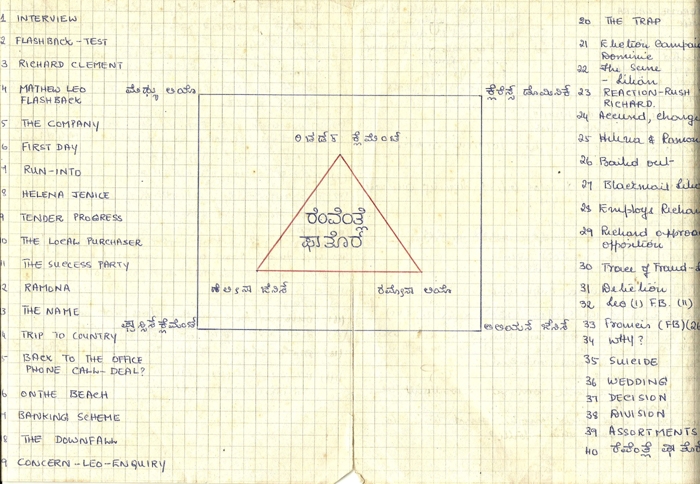 1 INTERVIEW
2 FLASHBACK - TEST
3 RICHARD CLEMENT
4 MATHEW LEO
FLASHBACK
5 THE COMPANY
6 FIRST DAY
7 RUN-INTO
8 HELENA JENICE
9 TENDER PROGRESS
10 THE LOCAL PURCHASER
11 THE SUCCESS PARTY
2 RAMONA
3 THE NAME
4 TRIP TO COUNTRY
5 BACK TO THE OFFICE
PHONE CALL - DEAL?
6 ON THE BEACH
7 BANKING SCHEME
8 THE DOWNFALL
9 CONCERN - LEO - ENQUIRY
ಮೆಥ್ಯು ಲಿಯೊ
ಕ್ಲೆರೆನ್ಸ್ ಡೊಮಿನಿಕ್
ರಿಚರ್ಡ್ ಕ್ಲೆಮೆಂಟ್
ರೆಂವೆಂತ್ಲೆ
ಫಾತೊರ್
ಹೆಲೆನಾ ಜೆನಿಸ್
ರಮೋನಾ ಲಿಯೊ
ಫ್ರಾನ್ಸಿಸ್ ಕ್ಲೆಮೆಂಟ್
ಲಿಲಿಯನ್ ಜೆನಿಸ್
20 THE TRAP
21 Election Campai
Dominic
22 The Scene
- Lilian
23 REACTION-RUSH
RICHARD.
24 Accused, charge
25 Helena & Ramon
26 Bailed out-
27 Blackmail Lili
28 Employs Richa
29 Richard approa
opposition
30 Trace of Fraud-
31 Deletion
32 Leo (1) F.B. (11)
33 Francis (FB)(2
34 Why?
35 SUICIDE
36 WEDDING
37 DECISION
38 DIVISION
39 ASSORTMENTS
40 ರೆಂವೆಂತ್ಲೆ ಫಾತೊರ್